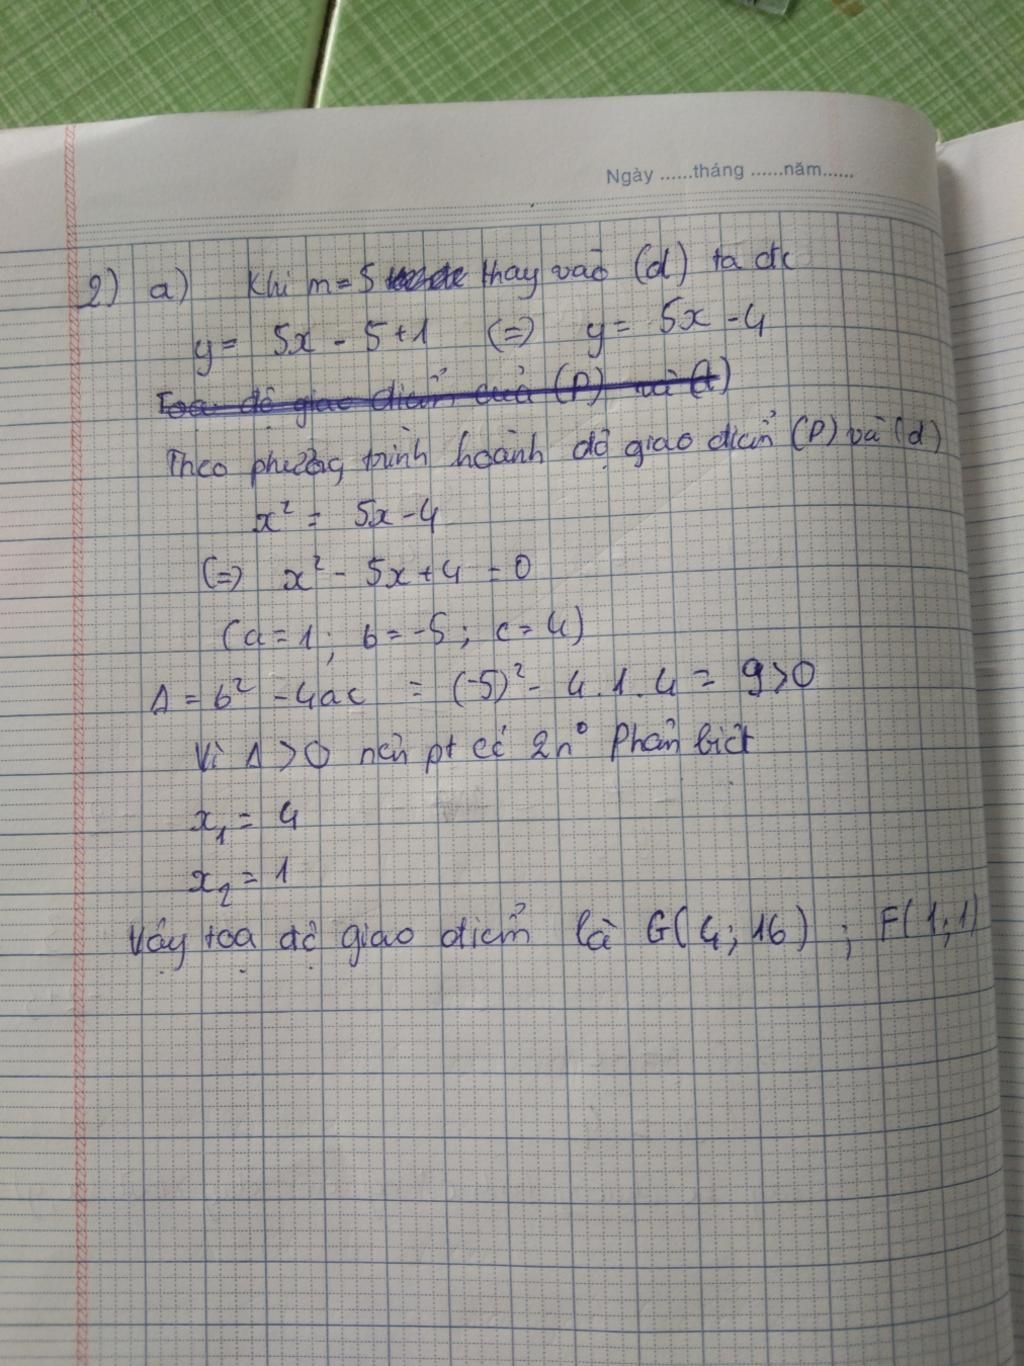 Ngày ......tháng ......năm......
2) a) Khi m = 5 thay vào (d) ta đc
y = 5x - 5 + 1 (=) y = 5x - 4
Toạ độ giao điểm của (P) và (d)
Theo phương trình hoành độ giao điểm (P) và (d)
x² = 5x - 4
(=) x² - 5x + 4 = 0
(a = 1; b = -5; c = 4)
Δ = b² - 4ac = (-5)² - 4.1.4 = 9 > 0
Vì Δ > 0 nên pt có 2 n° phân biệt
x₁ = 4
x₂ = 1
Vậy toạ độ giao điểm là G(4; 16) ; F(1; 1)